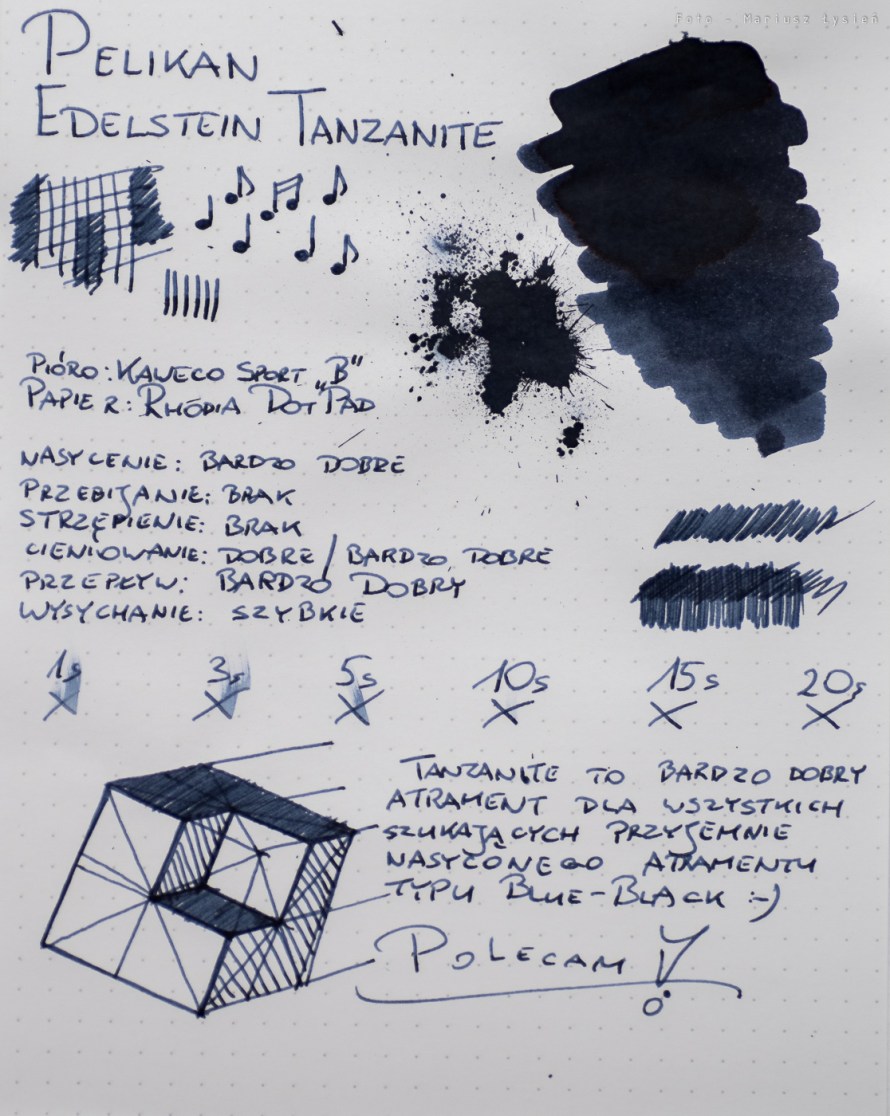 Foto - Mariusz Łysień
PELIKAN
EDELSTEIN TANZANITE
PIÓRO: KAWECO SPORT „B”
PAPIER: RHODIA DOT PAD
NASYCENIE: BARDZO DOBRE
PRZEBIJANIE: BRAK
STRZĘPIENIE: BRAK
CIENIOWANIE: DOBRE / BARDZO DOBRE
PRZEPŁYW: BARDZO DOBRY
WYSYCHANIE: SZYBKIE
1s 3s 5s 10s 15s 20s
TANZANITE TO BARDZO DOBRY
ATRAMENT DLA WSZYSTKICH
SZUKAJĄCYCH PRZYJEMNIE
NASYCONEGO ATRAMENTU
TYPU BLUE-BLACK :-)
POLECAM!